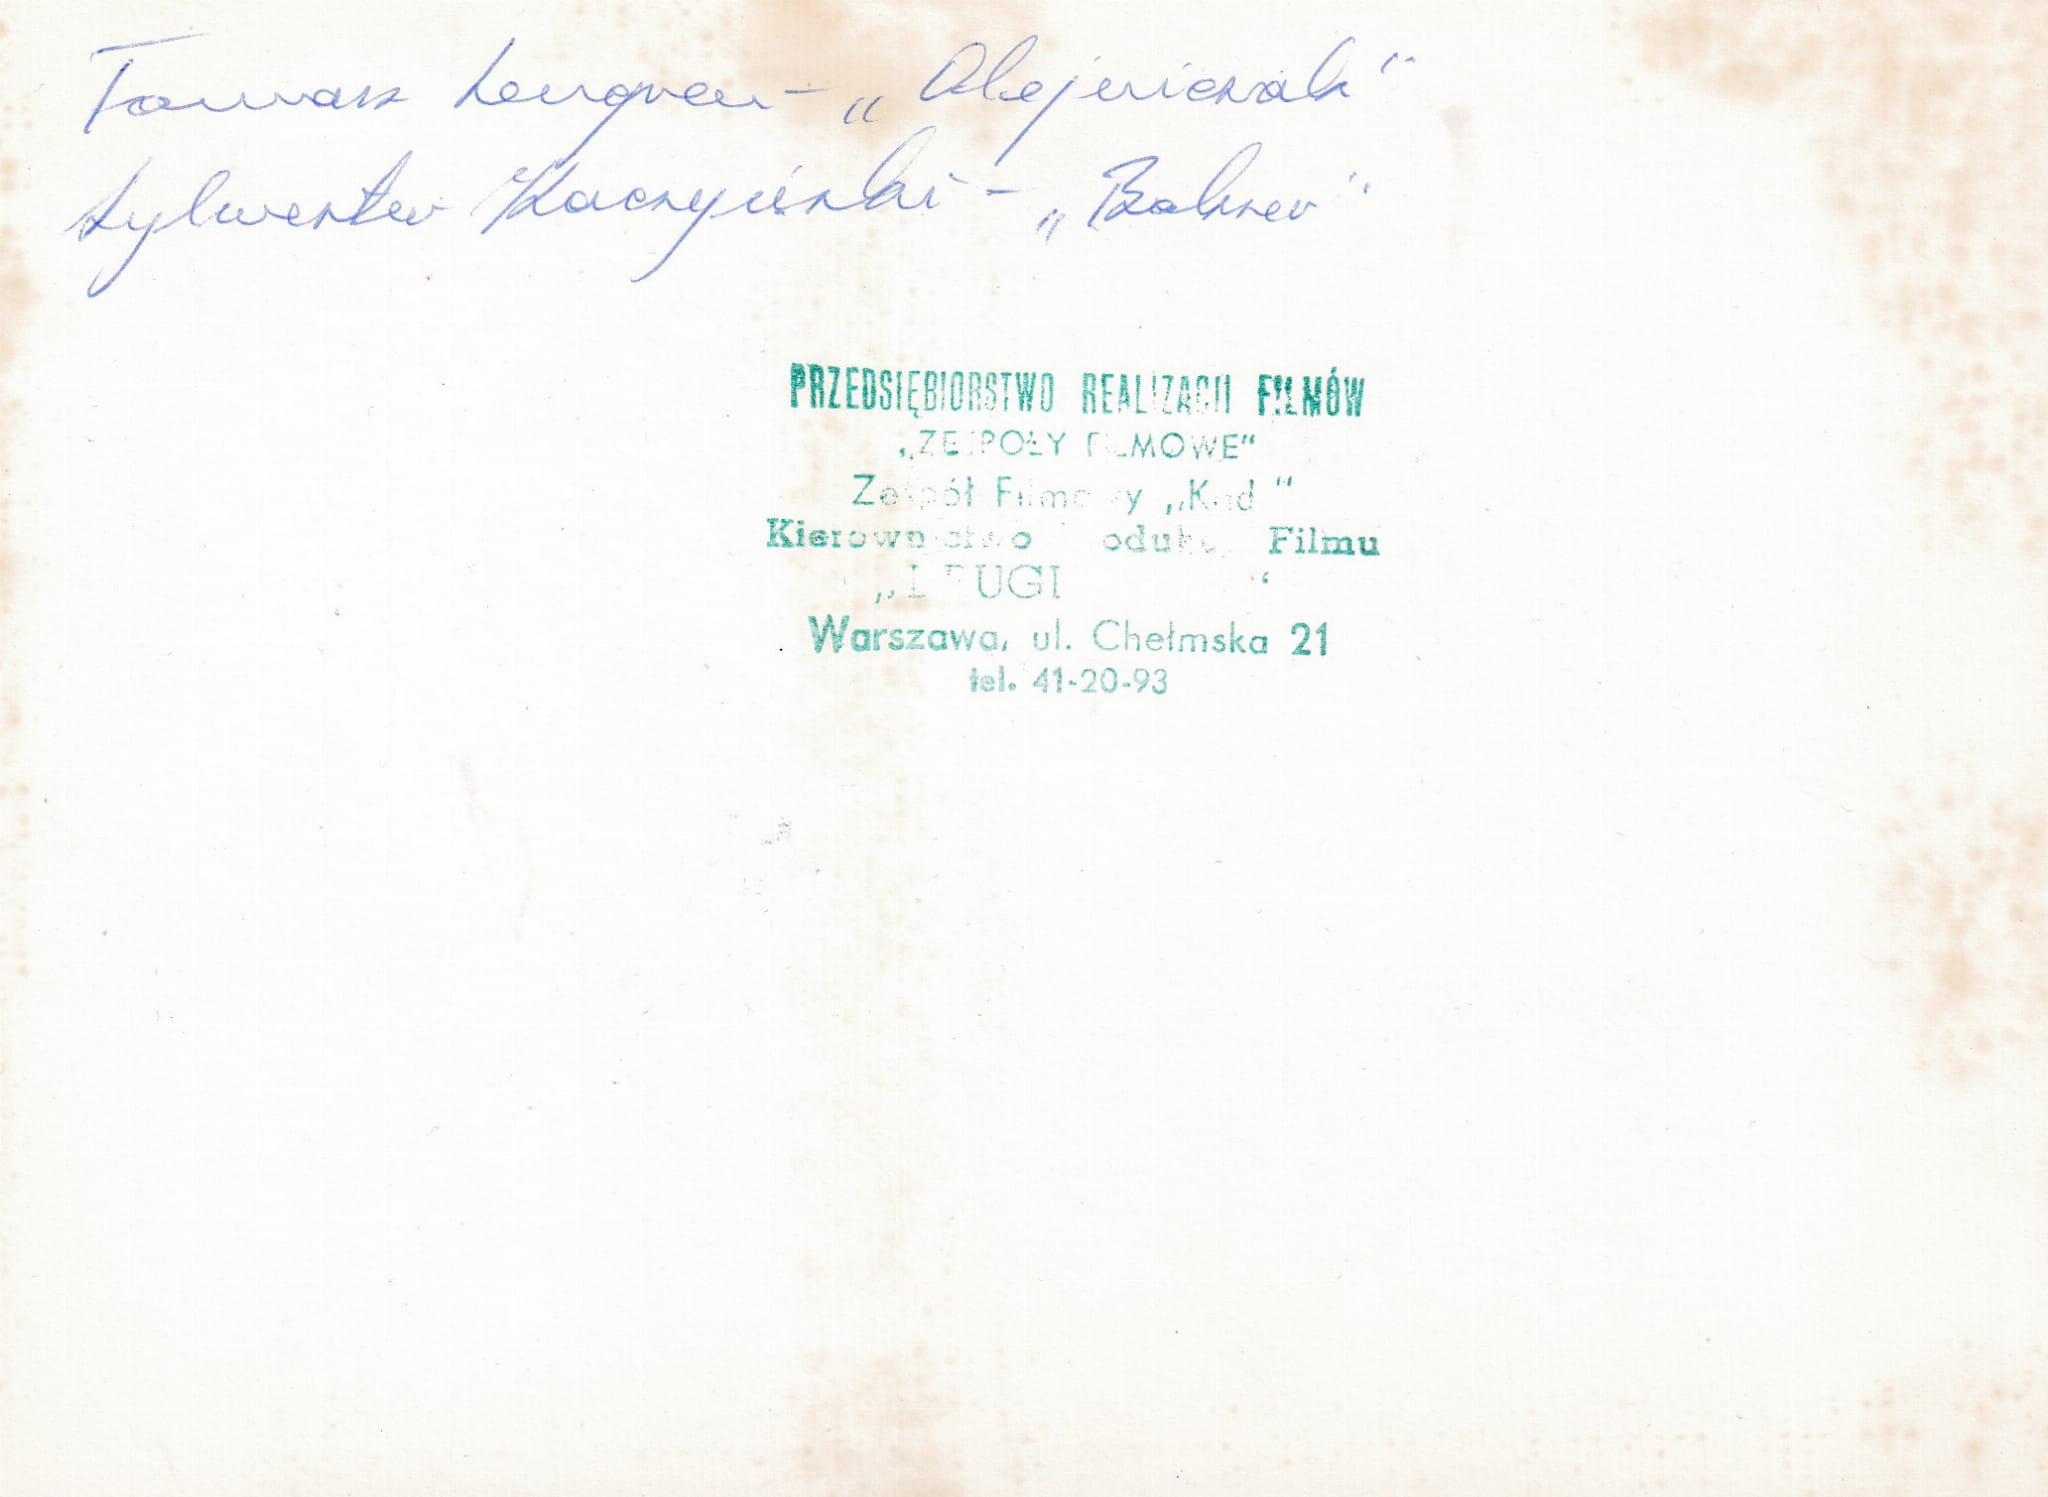 Tomasz Lengren – „Olejniczak"
Sylwester Maciejewski – „Balser"
PRZEDSIĘBIORSTWO REALIZACJI FILMÓW
„ZESPOŁY FILMOWE"
Zespół Filmowy „Kadr"
Kierownictwo Produkcji Filmu
Warszawa, ul. Chełmska 21
tel. 41-20-93